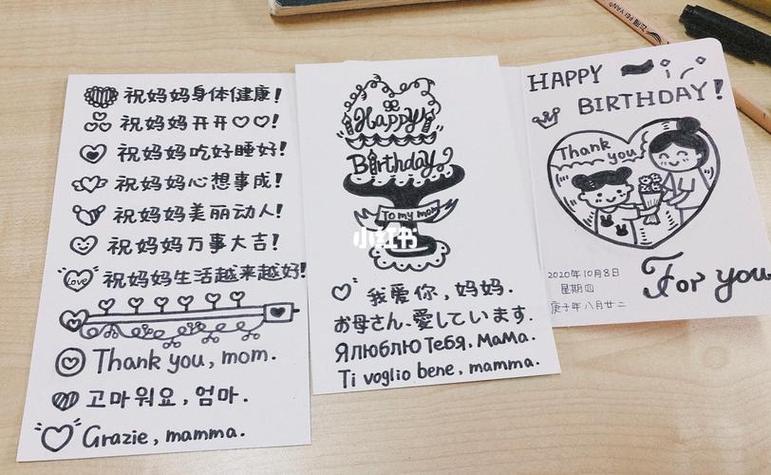 祝妈妈身体健康!
祝妈妈开开♡♡!
祝妈妈吃好睡好!
祝妈妈心想事成!
祝妈妈美丽动人!
祝妈妈万事大吉!
Love 祝妈妈生活越来越好!
Thank you, mom.
고마워요, 엄마.
Grazie, mamma.
Happy
Birthday
To my mom
小红书
我爱你, 妈妈.
お母さん、愛しています.
Я люблю Тебя, МаМа.
Ti voglio bene, mamma.
HAPPY
BIRTHDAY!
Thank
you
2020年10月8日
星期四
庚子年八月廿二
For you